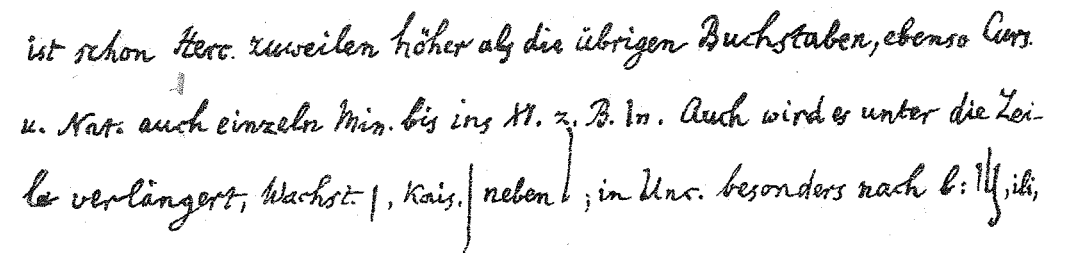 ist schon Herc. zuweilen höher als die übrigen Buchstaben, ebenso Curs.
u. Nat. auch einzeln Min. bis ins XI. z. B. In. Auch wird es unter die Zei-
le verlängert, Wachst. |, Kais. | neben l ; in Unc. besonders nach l: , ili,